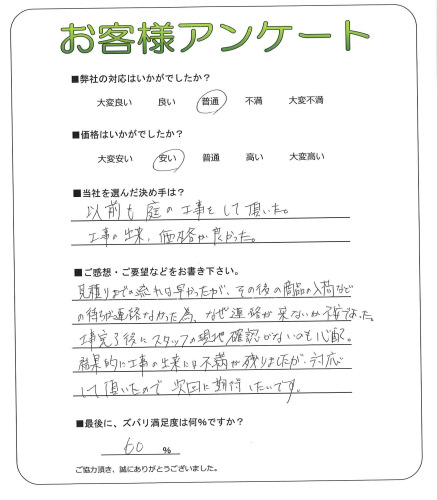 お客様アンケート
■弊社の対応はいかがでしたか?
大変良い 良い 普通 不満 大変不満
■価格はいかがでしたか?
大変安い 安い 普通 高い 大変高い
■当社を選んだ決め手は?
以前も庭の工事をして頂いた。
工事の出来、価格が良かった。
■ご感想・ご要望などをお書き下さい。
見積りまでの流れは早かったが、その後の商品の入荷など
の待ちが連絡なかった為、なぜ連絡が来ないか不安だった。
工事完了後にスタッフの現地確認がないのも心配。
結果的に工事の出来には不満が残りましたが、対応
して頂いたので次回に期待したいです。
■最後に、ズバリ満足度は何%ですか?
60 %
ご協力頂き、誠にありがとうございました。